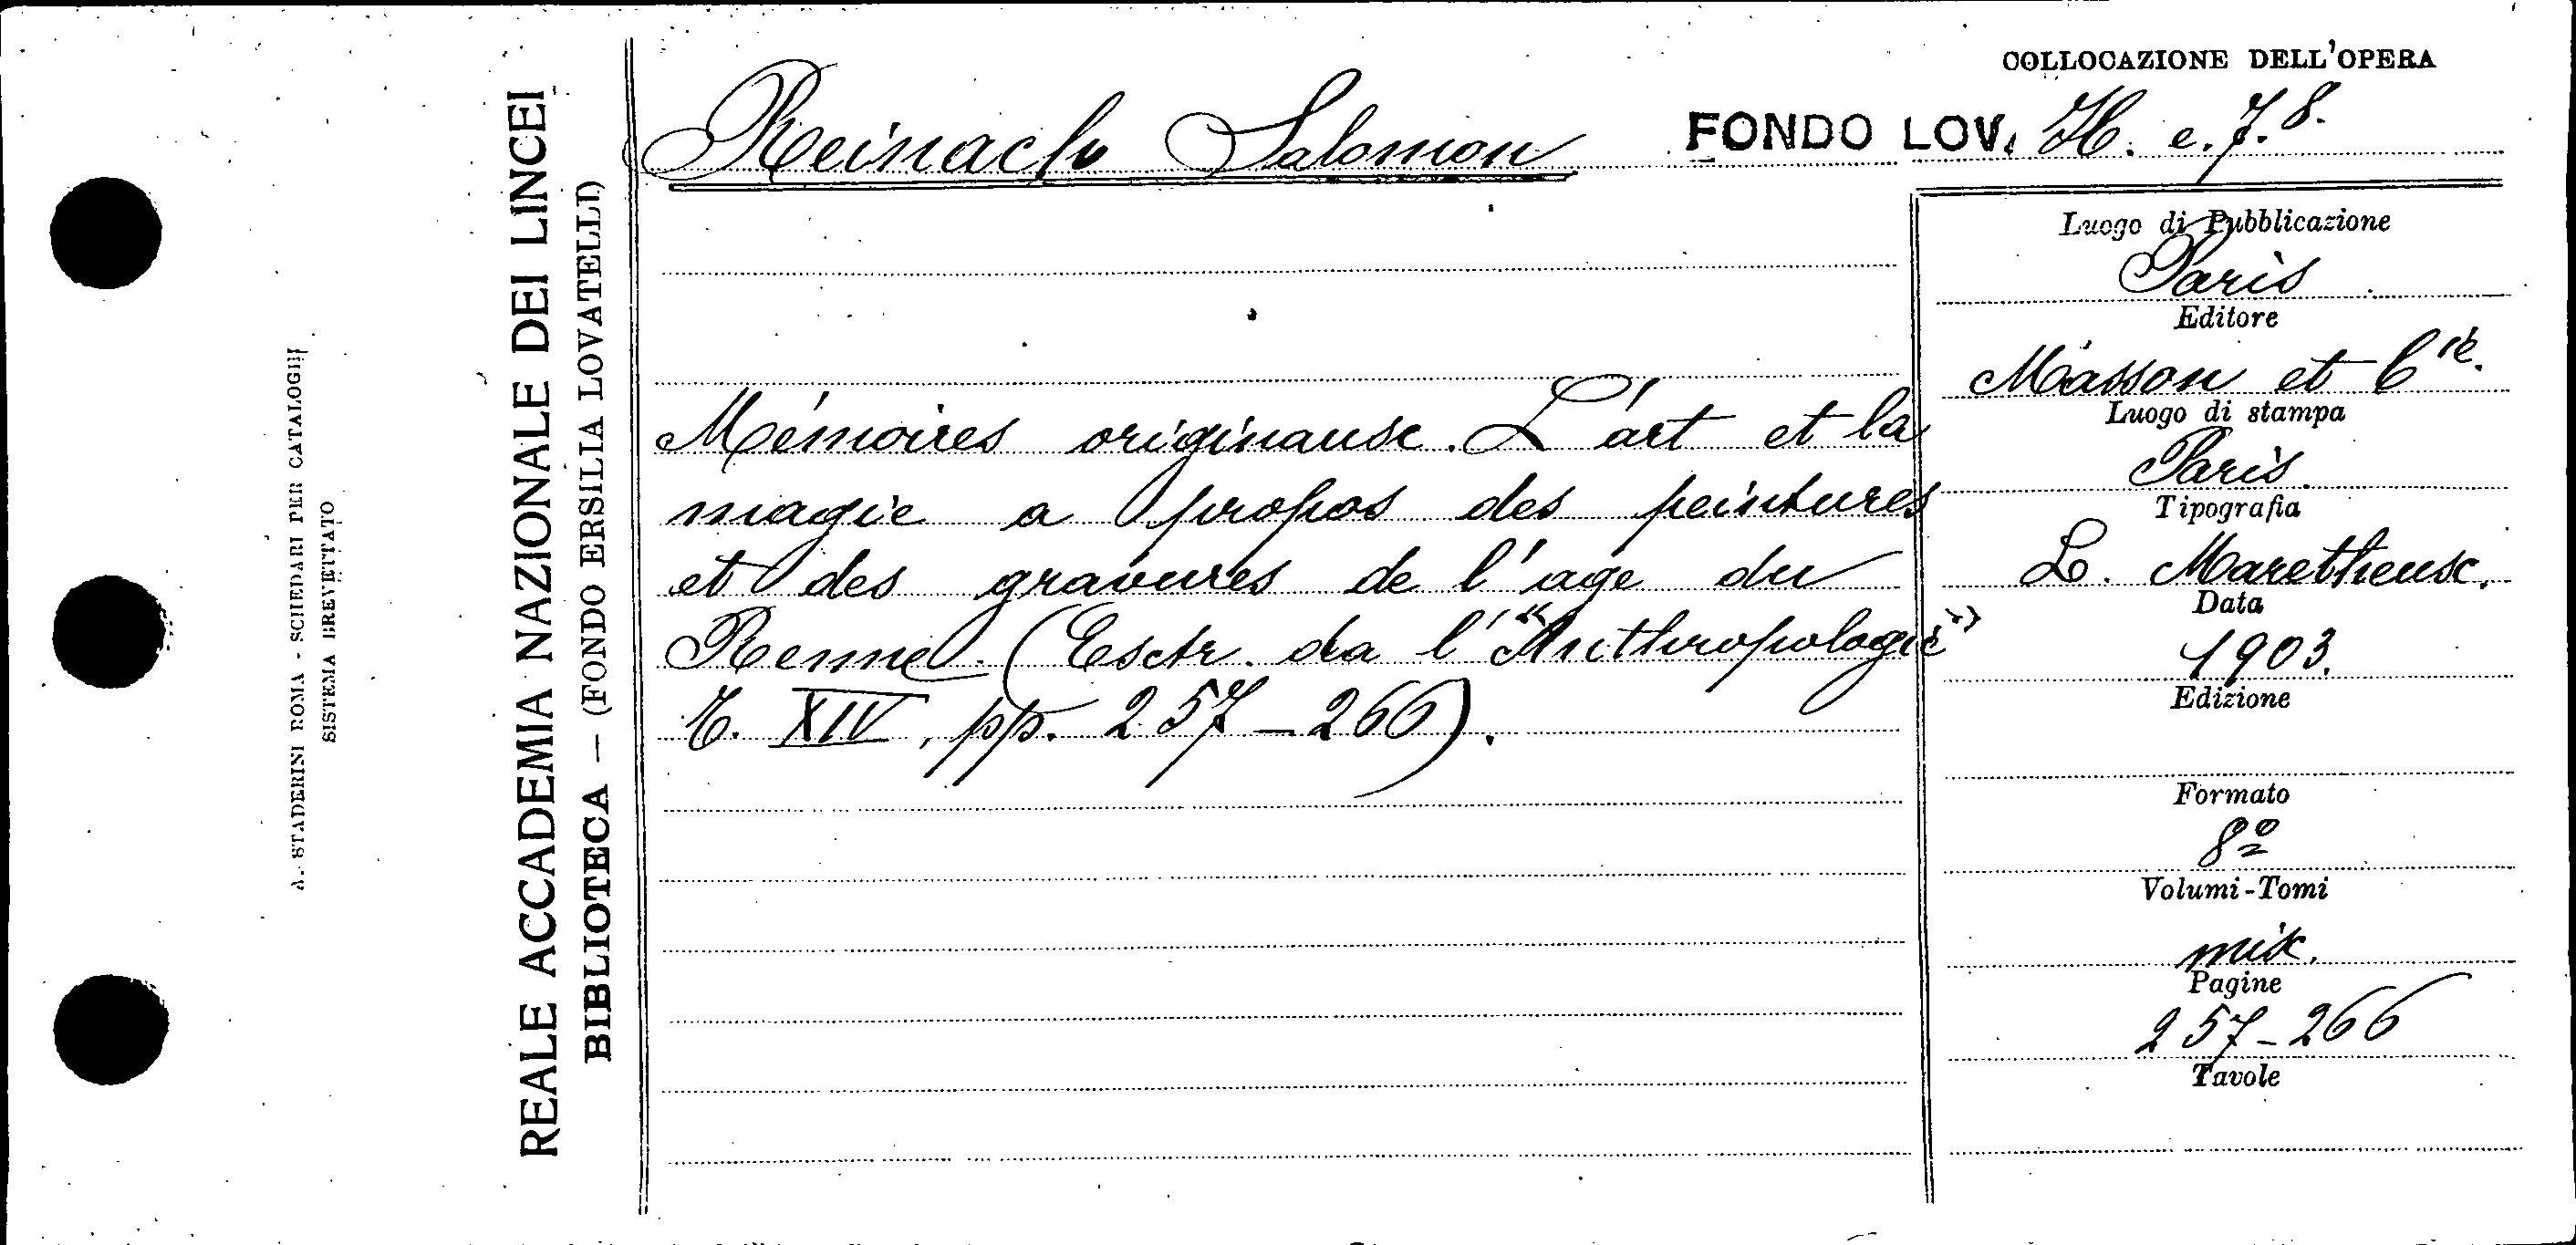 COLLOCAZIONE DELL'OPERA
Reinach Salomon
FONDO LOV. H. e. 7. 8.
Mémoires originaux. L'art et la
magie a propos des peintures
et des gravures de l'age du
Renne. (Extr. da l'"Anthropologie"
T. XIV, pp. 257-266).
Luogo di Pubblicazione
Paris
Editore
Masson et Cie.
Luogo di stampa
Paris.
Tipografia
L. Maretheux.
Data
1903.
Edizione
Formato
8º
Volumi-Tomi
misc.
Pagine
257-266
Tavole
REALE ACCADEMIA NAZIONALE DEI LINCEI
BIBLIOTECA — (FONDO ERSILIA LOVATELLI)
A. STADERINI ROMA - SCHEDARI PER CATALOGHI
SISTEMA BREVETTATO